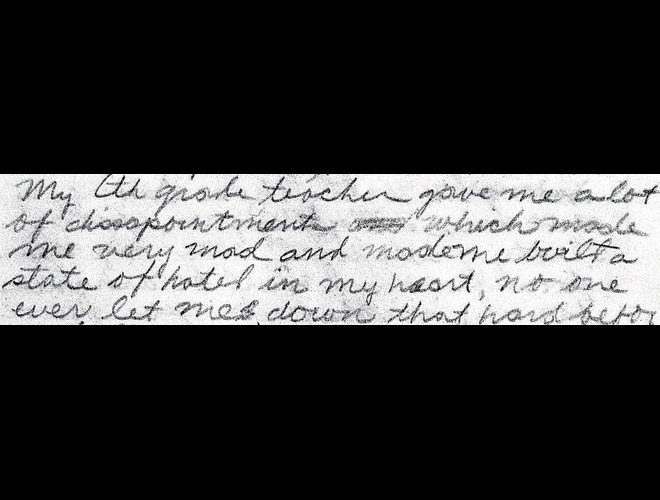 My 6th grade teacher gave me a lot
of dissapointment which made
me very mad and mademe built a
state of hatel in my heart, no one
ever let me down that hard befor